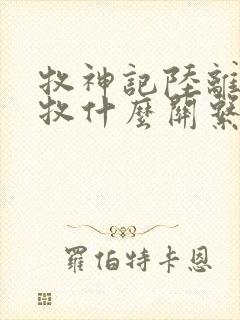 牧神記陸離
牧什麼關繫
羅伯特卡恩